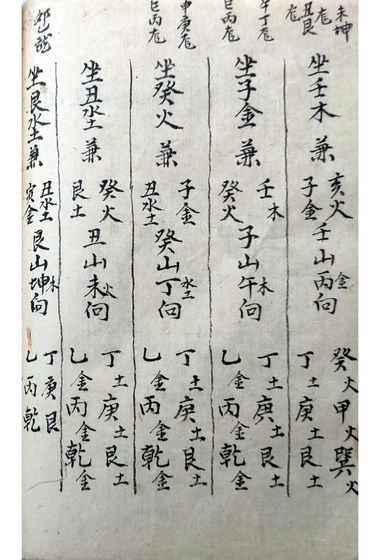 未坤
丑艮
坐壬木兼
亥火
子金
壬山丙向
金
癸火甲火巽火
丁土庚土艮土
午丁
巳丙
坐子金兼
壬木
癸火
子山午向
木
丁土庚土艮土
乙金丙金乾金
申庚
巳丙
坐癸火兼
子金
丑水土
癸山丁向
水土
丁土庚土艮土
乙金丙金乾金
坐丑水土兼
癸火
艮土
丑山未向
火
丁土庚土艮土
乙金丙金乾金
坐艮水土兼
丑水土
寅金
艮山坤向
木
丁庚艮
乙丙乾